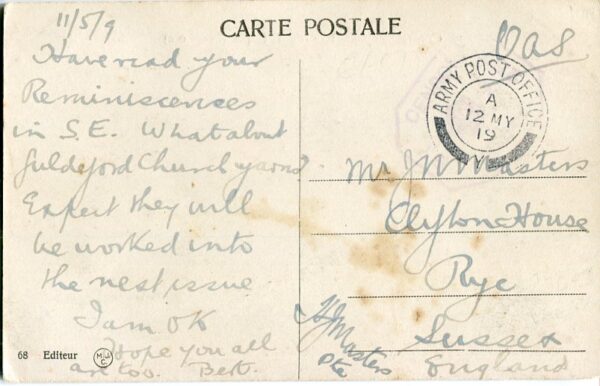 CARTE POSTALE
11/5/9
Have read your
Reminiscences
in S.E. What about
Guldeford Church yarns?
Expect they will
be worked into
the next issue
I am OK
Hope you all
are too. Bert.
OAS
ARMY POST OFFICE
A
12 MY
19
Y
Mr J N Masters
Clifton House
Rye
Sussex
England
Masters
Pte
68 Editeur